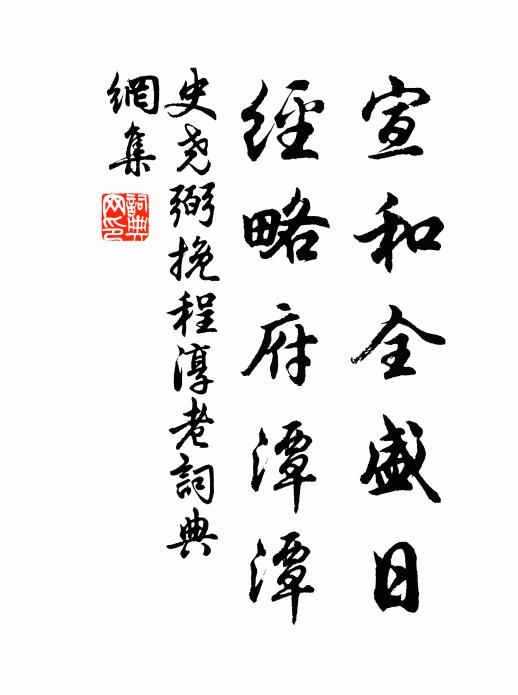 宣和全盛日
經略府潭潭
史尧弼挽程淳老詞典
網集
詞典网印